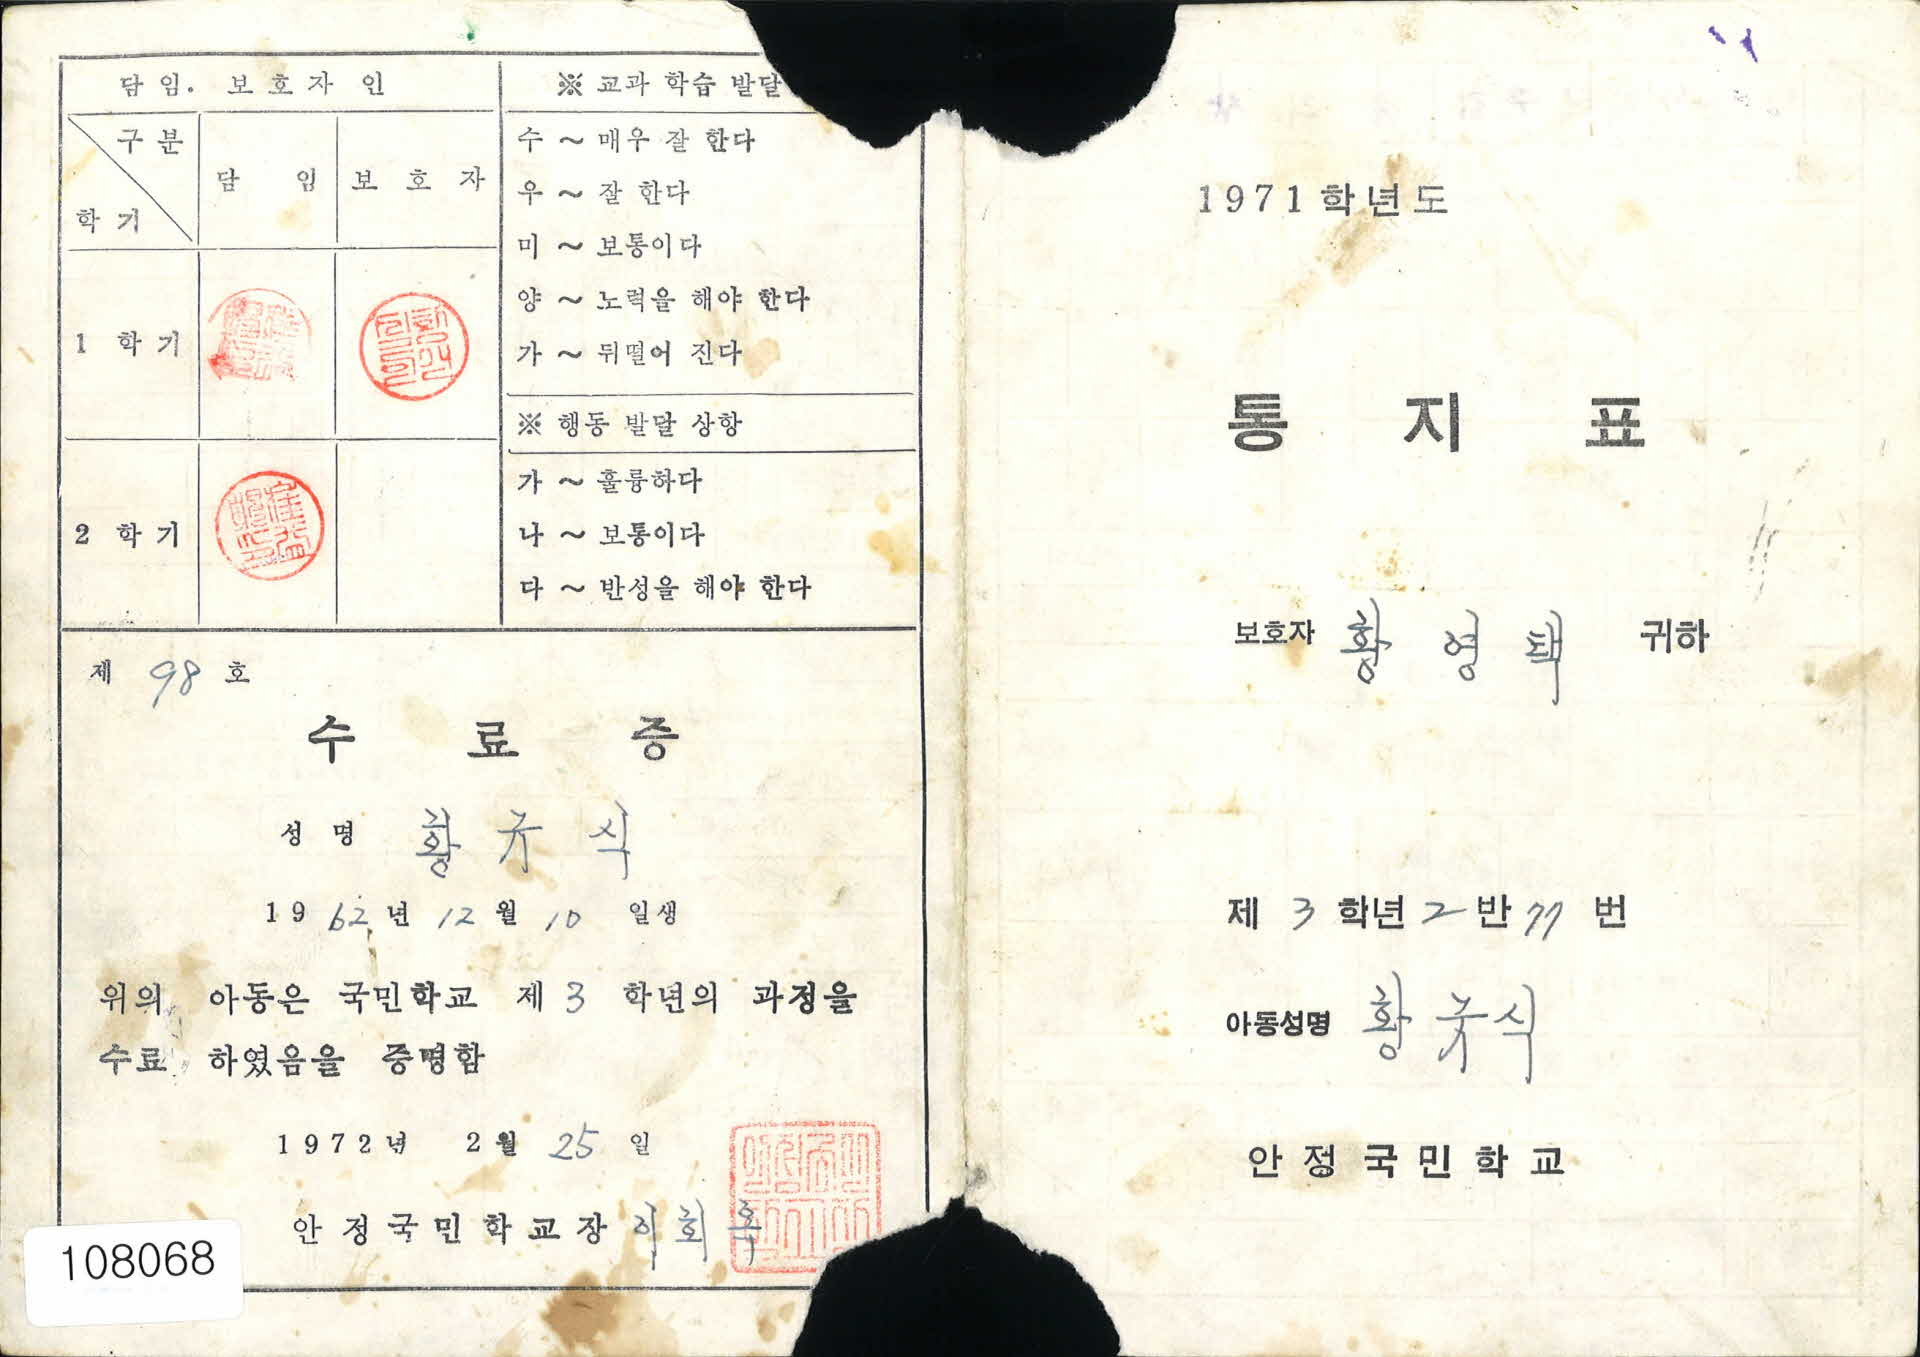 담임. 보호자 인
구분
학기
담 임
보 호 자
1 학기
2 학기
※ 교과 학습 발달
수 ~ 매우 잘 한다
우 ~ 잘 한다
미 ~ 보통이다
양 ~ 노력을 해야 한다
가 ~ 뒤떨어 진다
※ 행동 발달 상항
가 ~ 훌륭하다
나 ~ 보통이다
다 ~ 반성을 해야 한다
제 98 호
수 료 증
성 명 황 규 식
1962년 12월 10 일생
위의 아동은 국민학교 제 3 학년의 과정을
수료 하였음을 증명함
1972년 2월 25 일
안정국민학교장 이 회
108068
1971학년도
통 지 표
보호자 황 영 택 귀하
제 3 학년 2 반 77 번
아동성명 황 규 식
안정국민학교